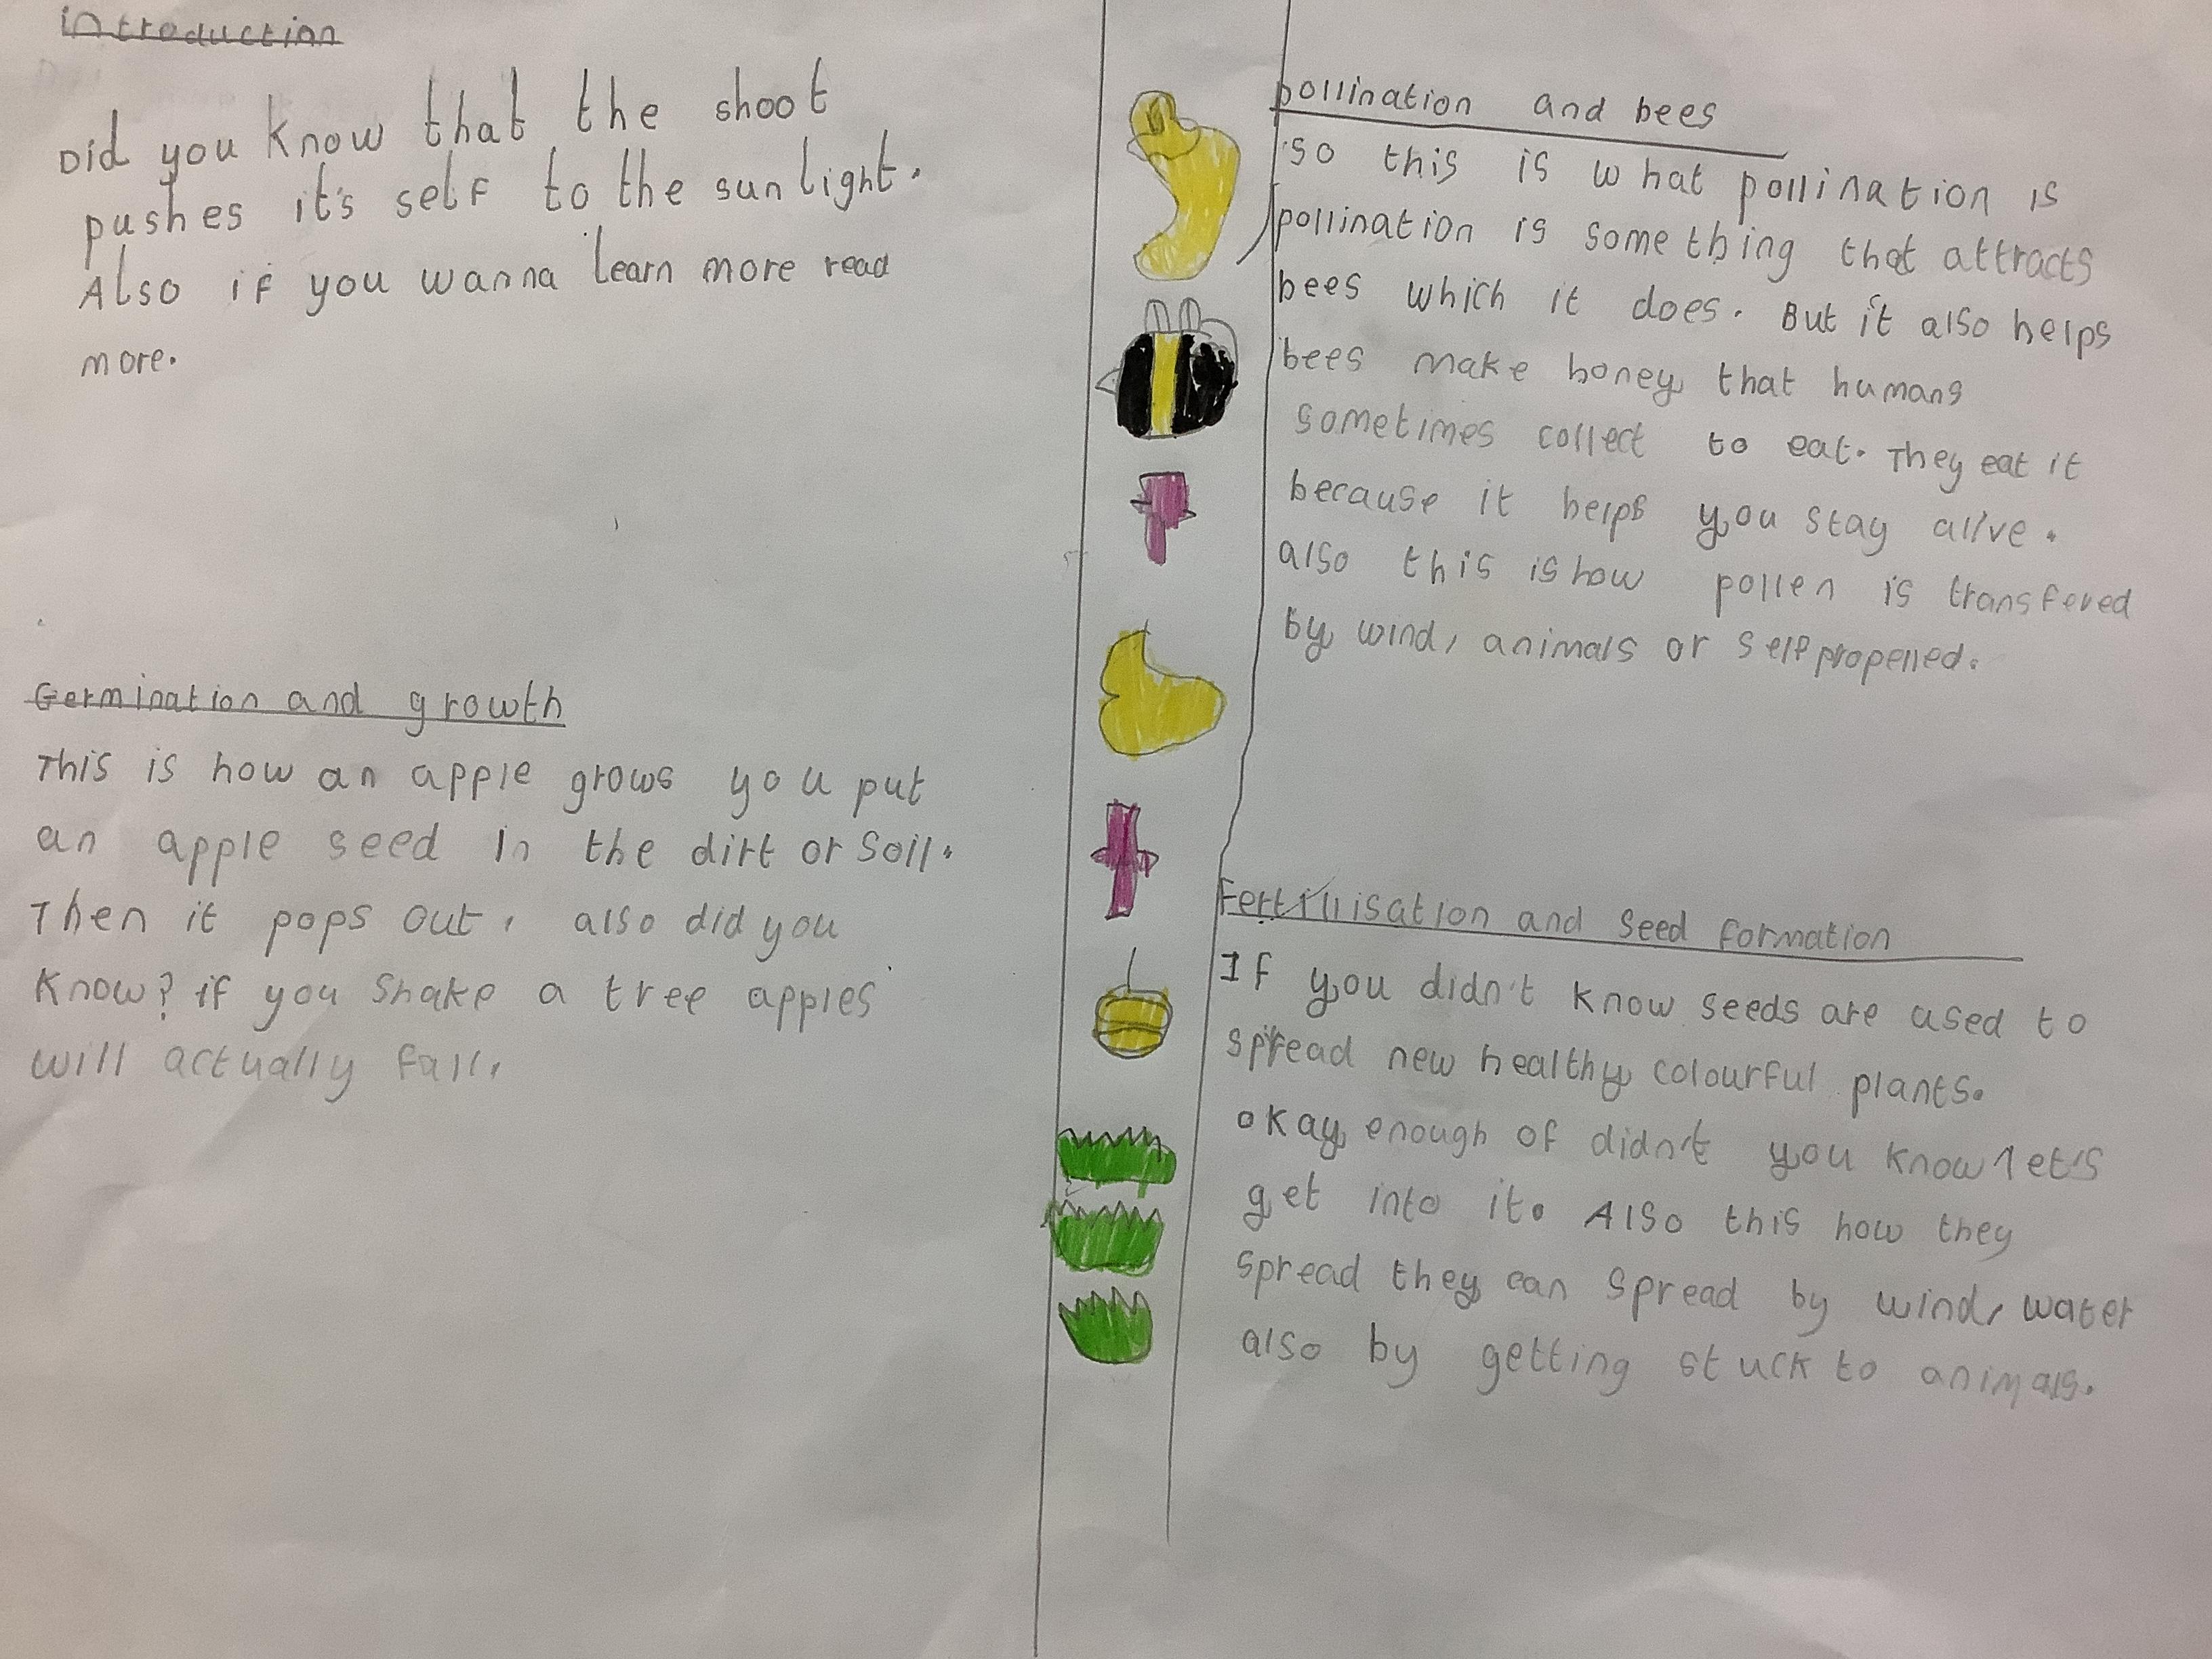 introduction
Did you know that the shoot
pushes it's self to the sun light.
Also if you wanna learn more read
more.
Germination and growth
This is how an apple grows you put
an apple seed in the dirt or soil.
Then it pops out. also did you
know? if you shake a tree apples
will actually fall.
pollination and bees
so this is what pollination is
pollination is something that attracts
bees which it does. But it also helps
bees make honey that humans
sometimes collect to eat. They eat it
because it helps you stay alive.
also this is how pollen is transfered
by wind, animals or self propelled.
Fertillisation and seed formation
If you didn't know seeds are used to
spread new healthy colourful plants.
okay enough of didn't you know let's
get into it. Also this how they
spread they can spread by wind, water
also by getting stuck to animals.